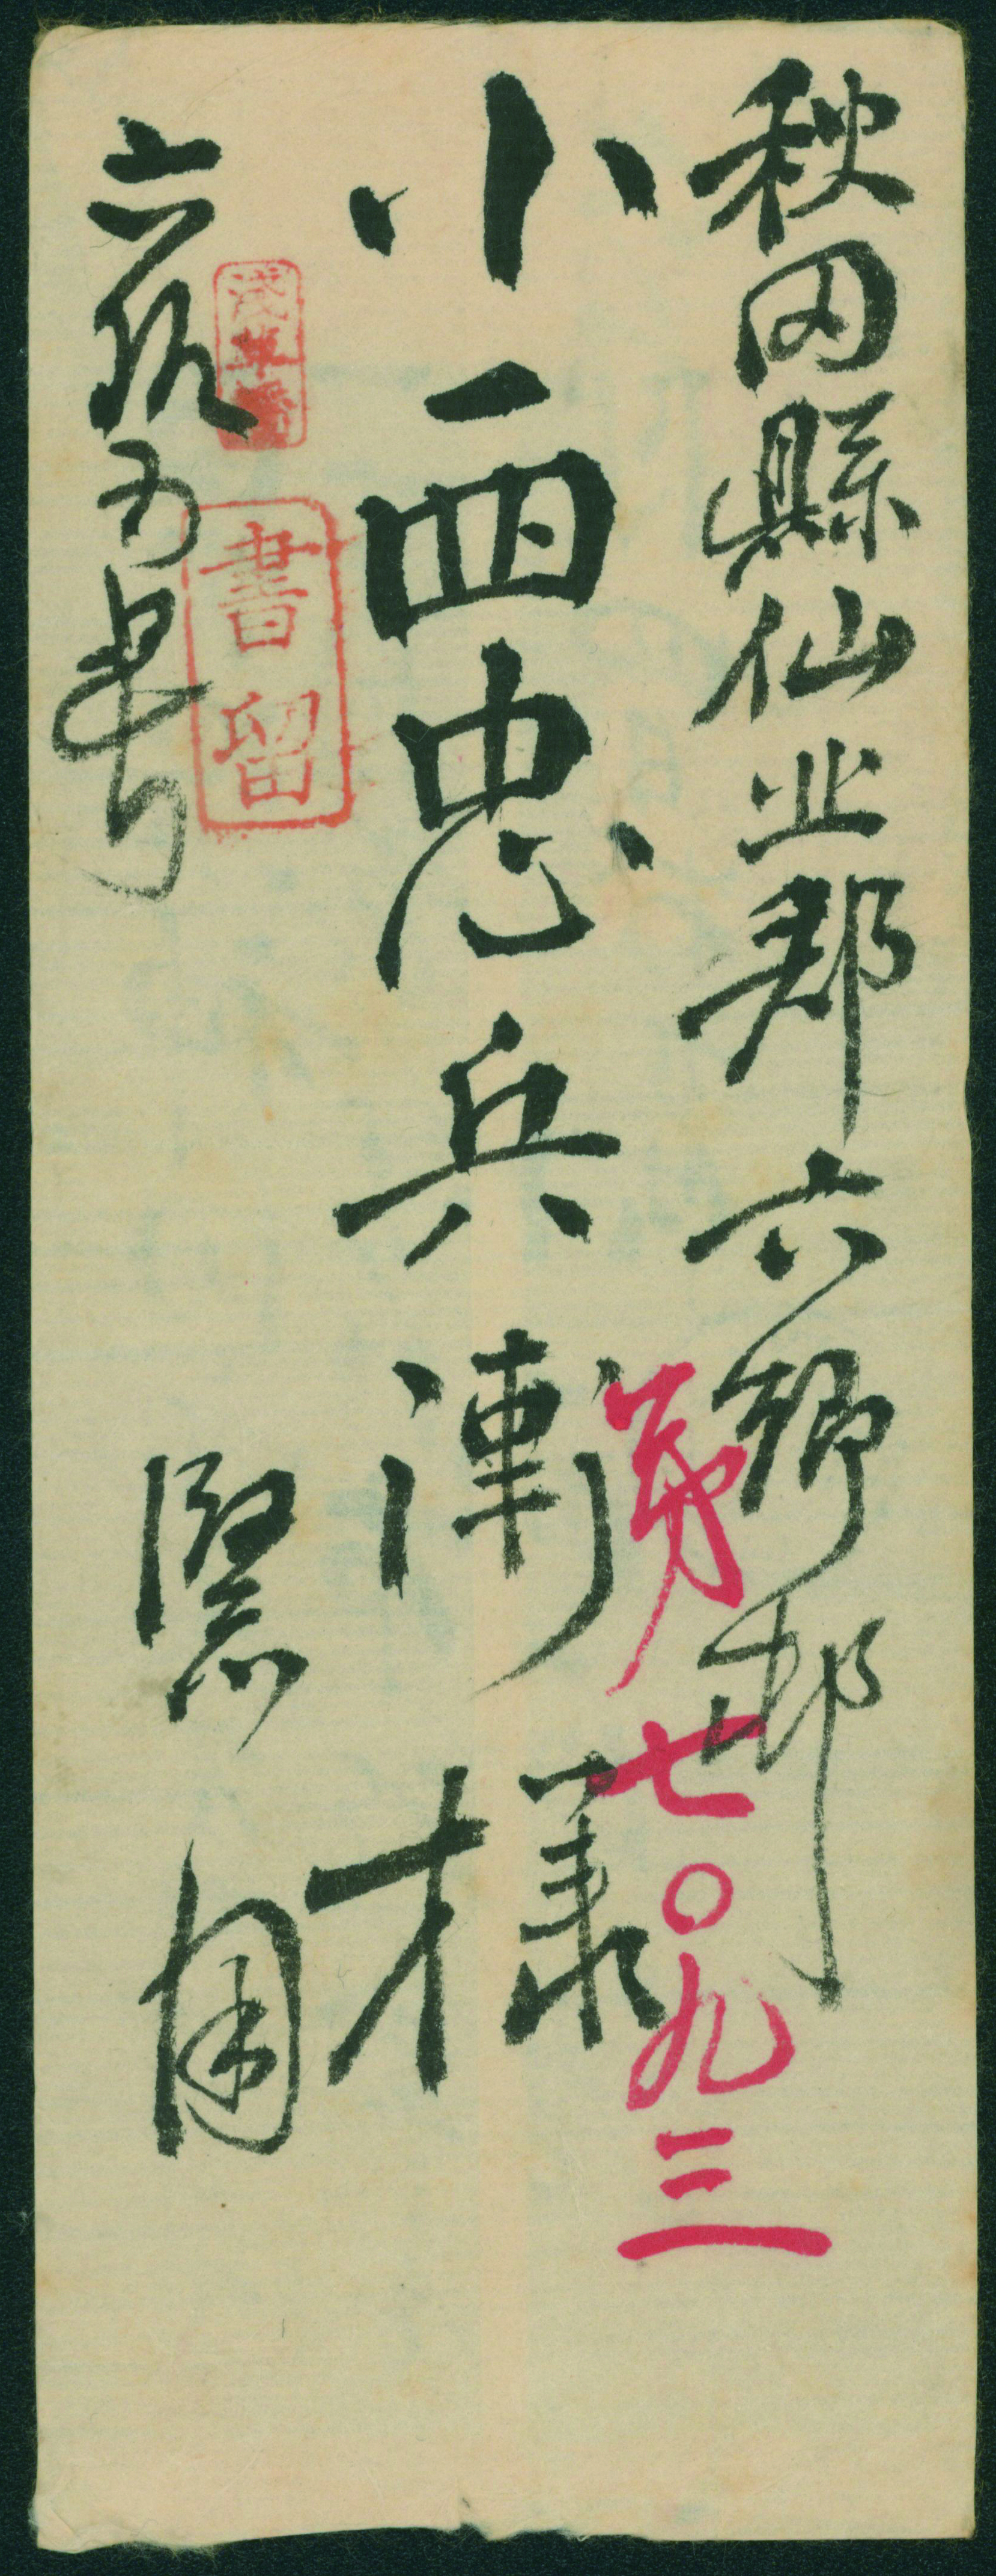 秋田縣仙北郡六郷邨
第七〇九三
小西忠兵衛様
浅草橋
書留
六織五號
緊用